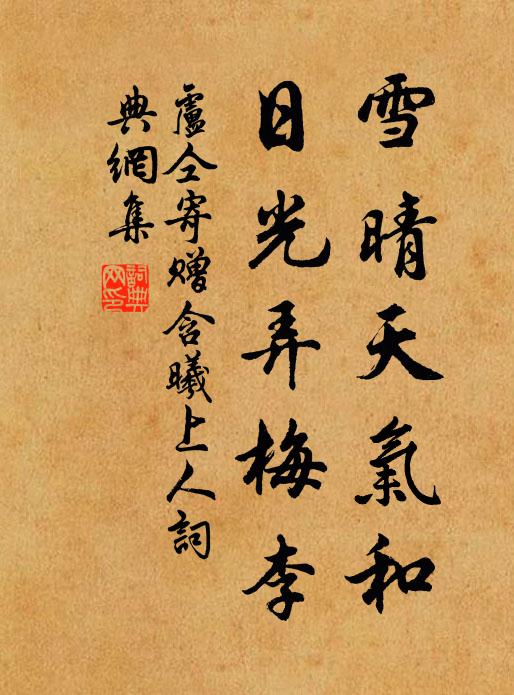 雪晴天氣和
日光弄梅李
盧仝寄贈含曦上人詞
典網集
詞典
网印